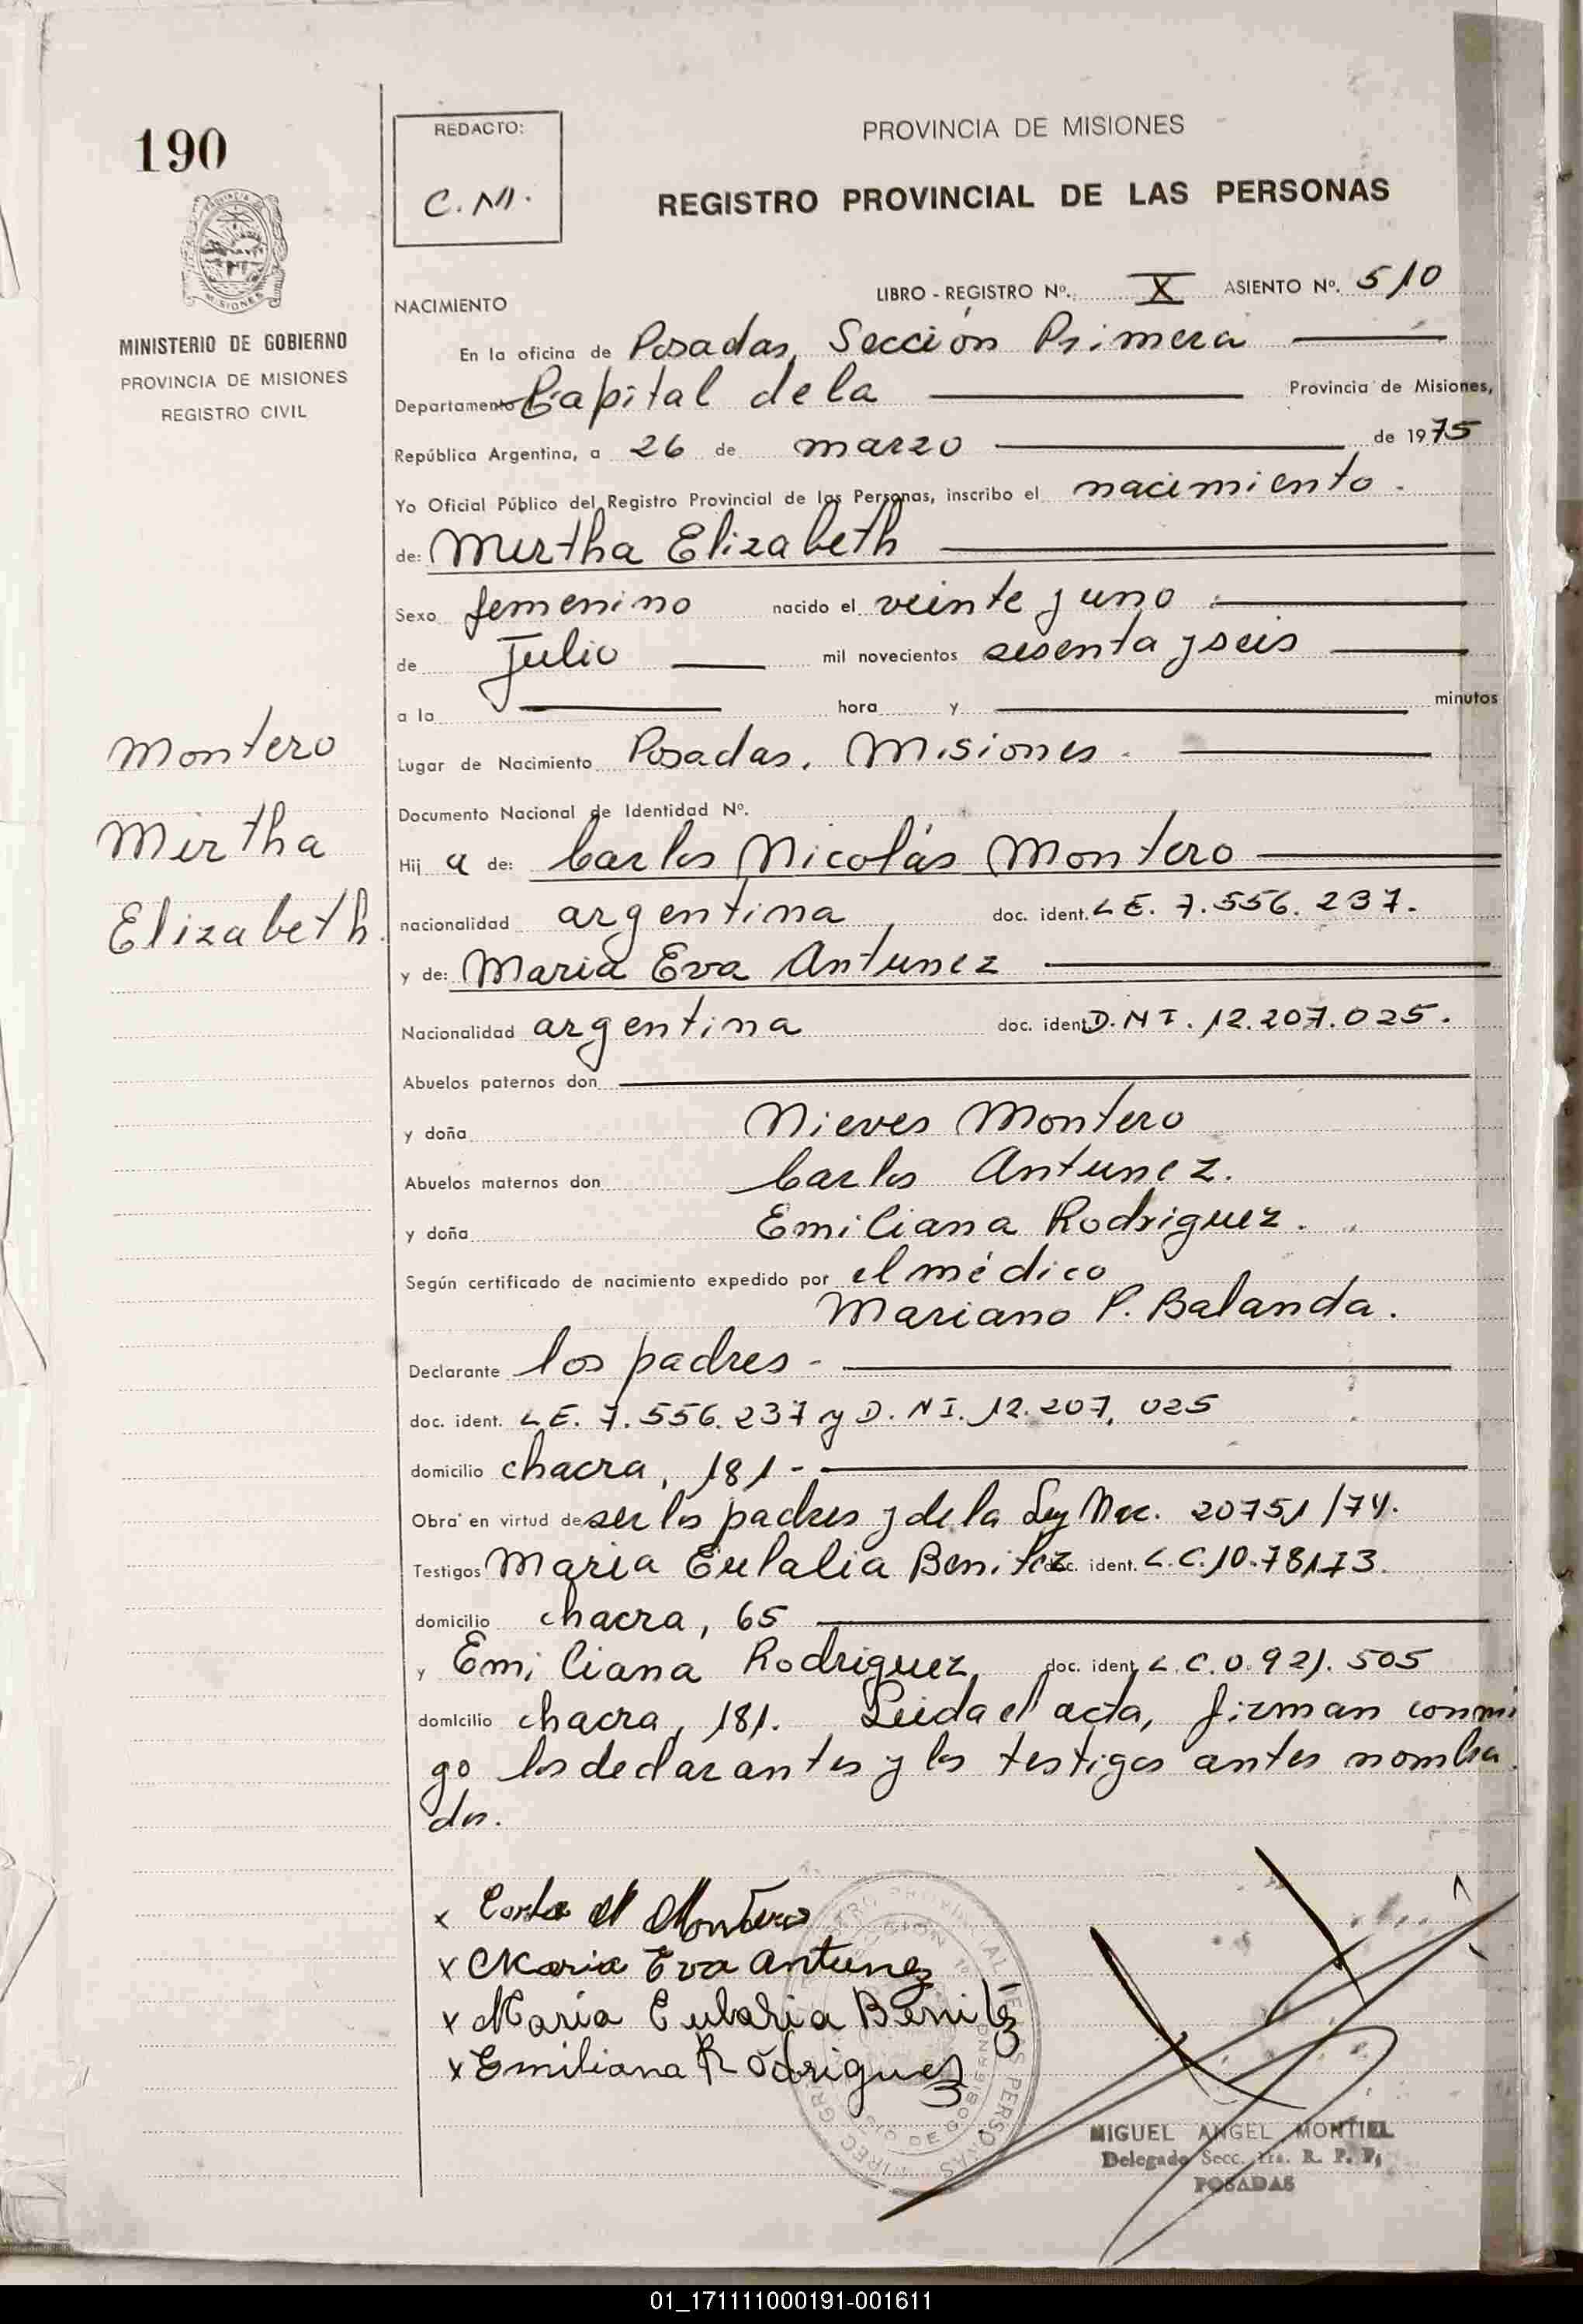 190
REDACTO:
C. M.
PROVINCIA DE MISIONES
REGISTRO PROVINCIAL DE LAS PERSONAS
MISIONES
MINISTERIO DE GOBIERNO
PROVINCIA DE MISIONES
REGISTRO CIVIL
LIBRO - REGISTRO Nº. X ASIENTO Nº. 510
NACIMIENTO
En la oficina de Posadas, Sección Primera
Departamento Capital de la Provincia de Misiones,
República Argentina, a 26 de marzo de 1975
Yo Oficial Público del Registro Provincial de las Personas, inscribo el nacimiento.
de: Mirtha Elizabeth
Sexo femenino nacido el veinte y uno
de Julio mil novecientos sesenta y seis
a la hora y minutos
Lugar de Nacimiento Posadas, Misiones.
Montero
Mirtha
Elizabeth.
Documento Nacional de Identidad Nº.
Hij a de: Carlos Nicolás Montero
nacionalidad argentina doc. ident. L E. 7.556.237.
y de: Maria Eva Antunez
Nacionalidad argentina doc. ident. D.N I. 12.207.025.
Abuelos paternos don
y doña Nieves Montero
Abuelos maternos don Carlos Antunez.
y doña Emiliana Rodriguez.
Según certificado de nacimiento expedido por el médico
Mariano P. Balanda.
Declarante los padres -
doc. ident. L E. 7.556.237 y D. N I. 12.207.025
domicilio chacra, 181 -
Obra en virtud de ser los padres y de la Ley Nac. 20751/74.
Testigos Maria Eulalia Benitez doc. ident. L.C. 10.78173.
domicilio chacra, 65
y Emiliana Rodriguez, doc. ident. L.C. 0.921.505
domicilio chacra, 181. Leida el acta, firman conmi
go los declarantes y los testigos antes nombra
dos.
x Carlos N Montero
x Maria Eva Antunez
x Maria Eulalia Benitez
x Emiliana Rodriguez
MIGUEL ANGEL MONTIEL
Delegado Secc. 1ra. R. P. P.
POSADAS
01_171111000191-001611